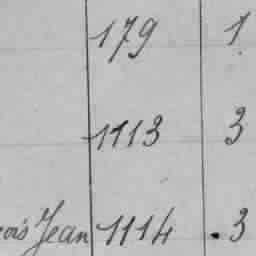 179 1
1113 3
çois Jean 1114 . 3